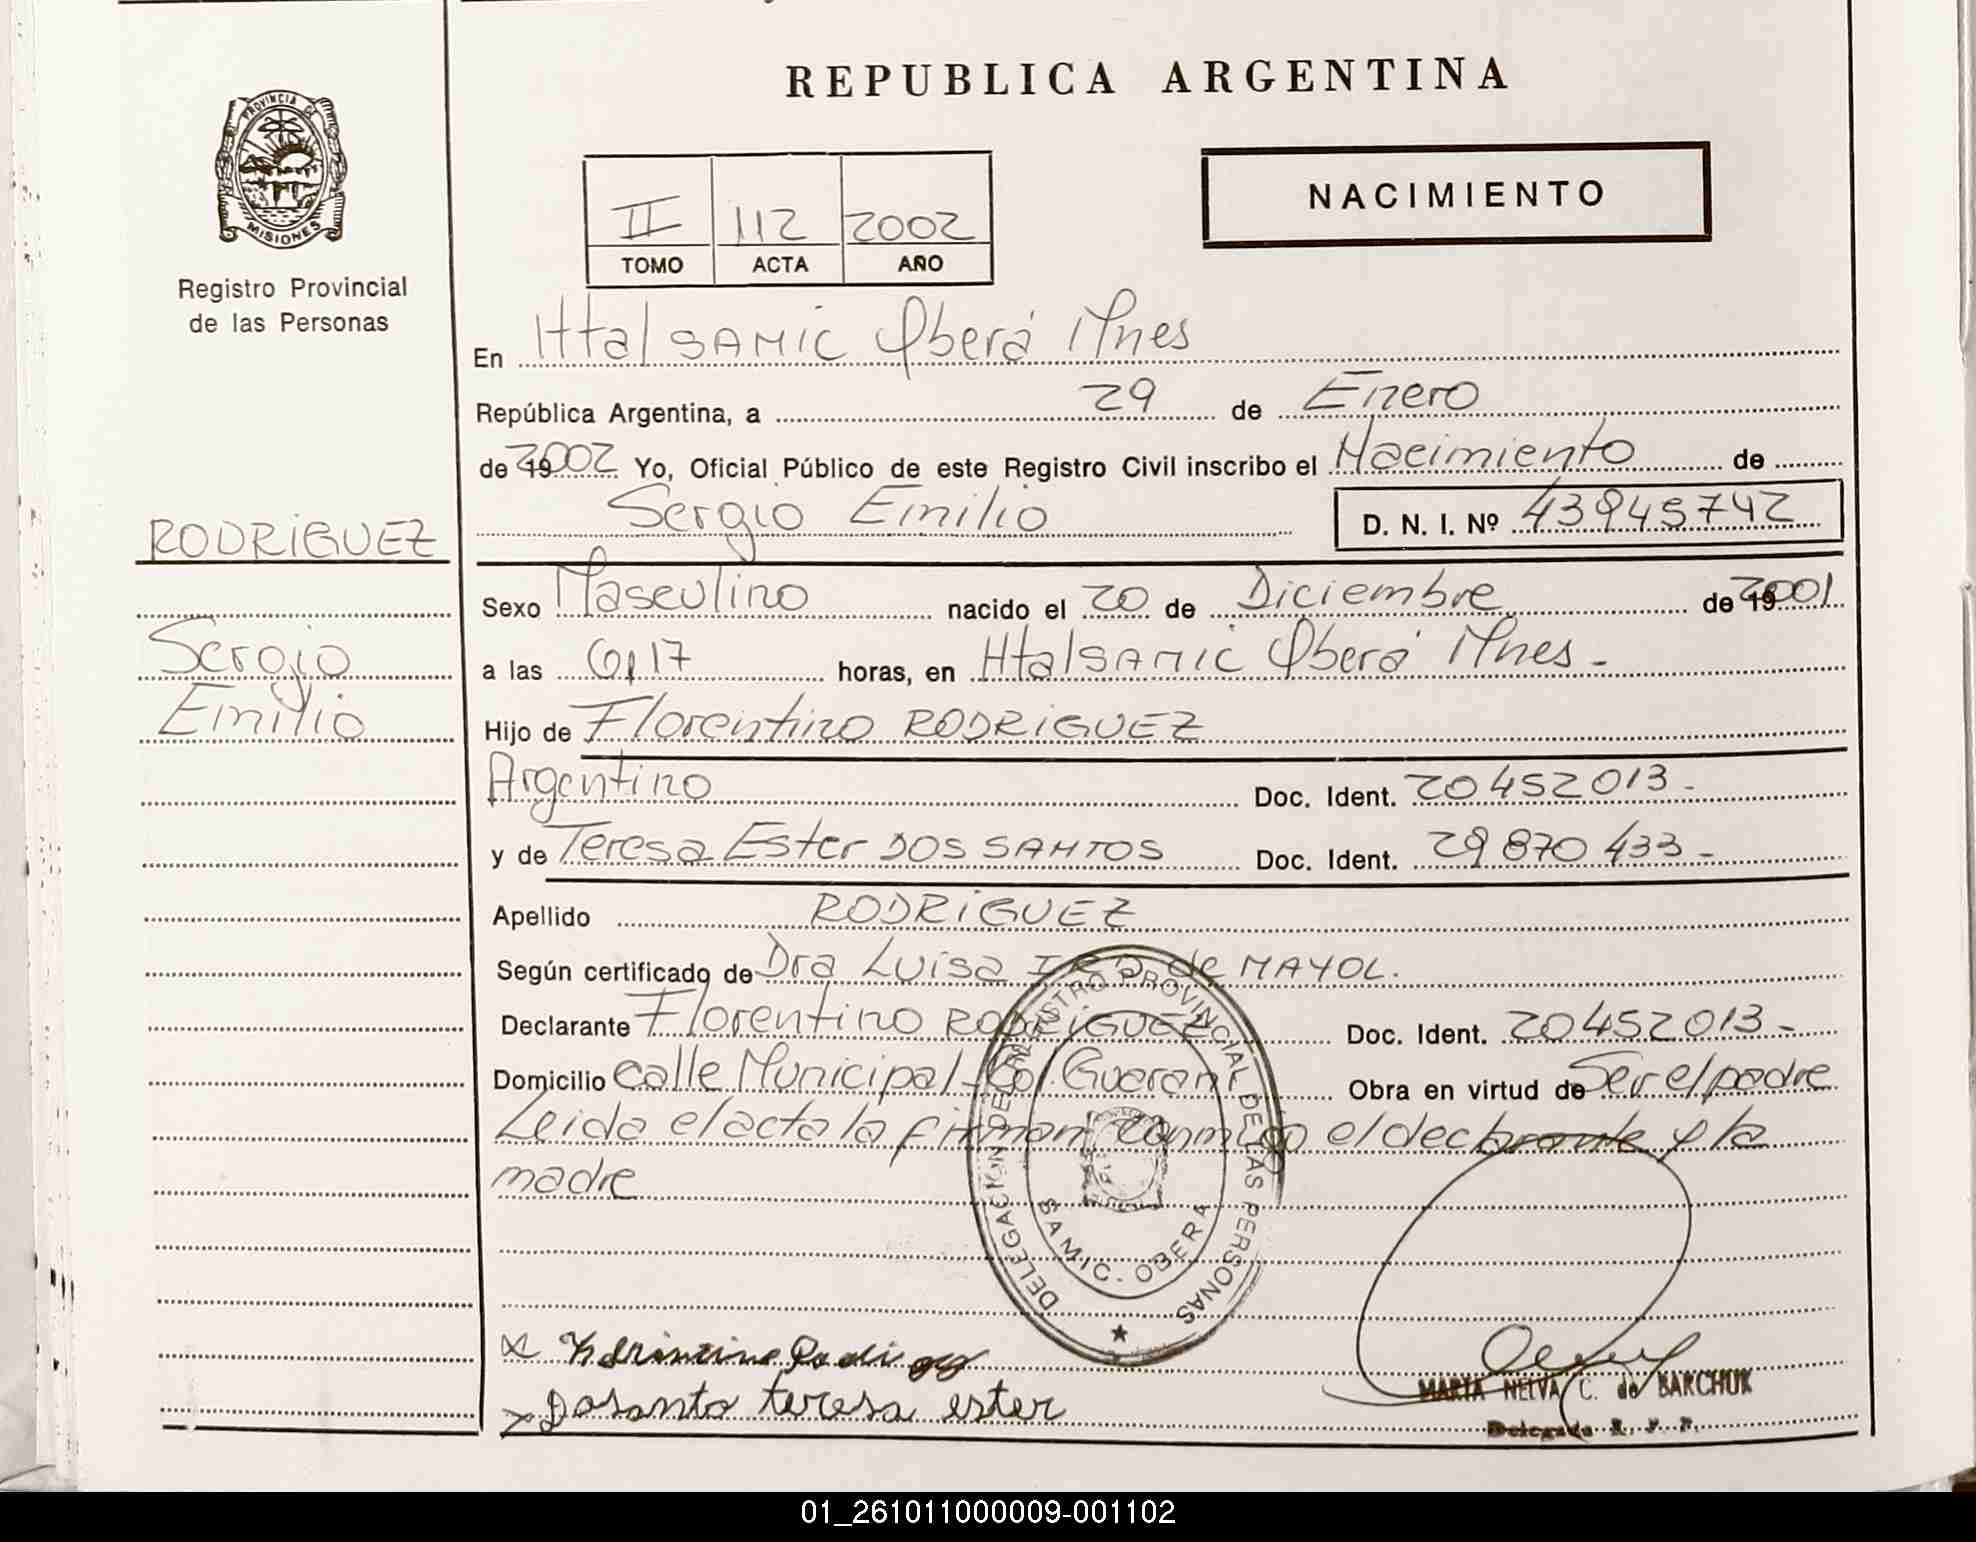 REPUBLICA ARGENTINA
PROVINCIA DE
MISIONES
Registro Provincial
de las Personas
NACIMIENTO
II 112 2002
TOMO ACTA AÑO
En Htal SAMIC Oberá Mnes
República Argentina, a 29 de Enero
de 2002 Yo, Oficial Público de este Registro Civil inscribo el Nacimiento de
Sergio Emilio D. N. I. Nº 43945742
RODRIGUEZ
Sergio
Emilio
Sexo Masculino nacido el 20 de Diciembre de 2001
a las 6,17 horas, en Htal SAMIC Oberá Mnes.-
Hijo de Florentino RODRIGUEZ
Argentino Doc. Ident. 20452013-
y de Teresa Ester DOS SANTOS Doc. Ident. 29870433-
Apellido RODRIGUEZ
Según certificado de Dra Luisa de MAYOL.
Declarante Florentino RODRIGUEZ Doc. Ident. 20452013-
Domicilio calle Municipal - Col. Guarani Obra en virtud de Ser el padre
Leida el acta la firman conmigo el declarante y la
madre
DELEGACION DEL REGISTRO PROVINCIAL DE LAS PERSONAS
SAMIC - OBERA
x
x Dosanto teresa ester
MARIA NELVA C. de BARCHUK
Delegada R. P. P.
01_261011000009-001102